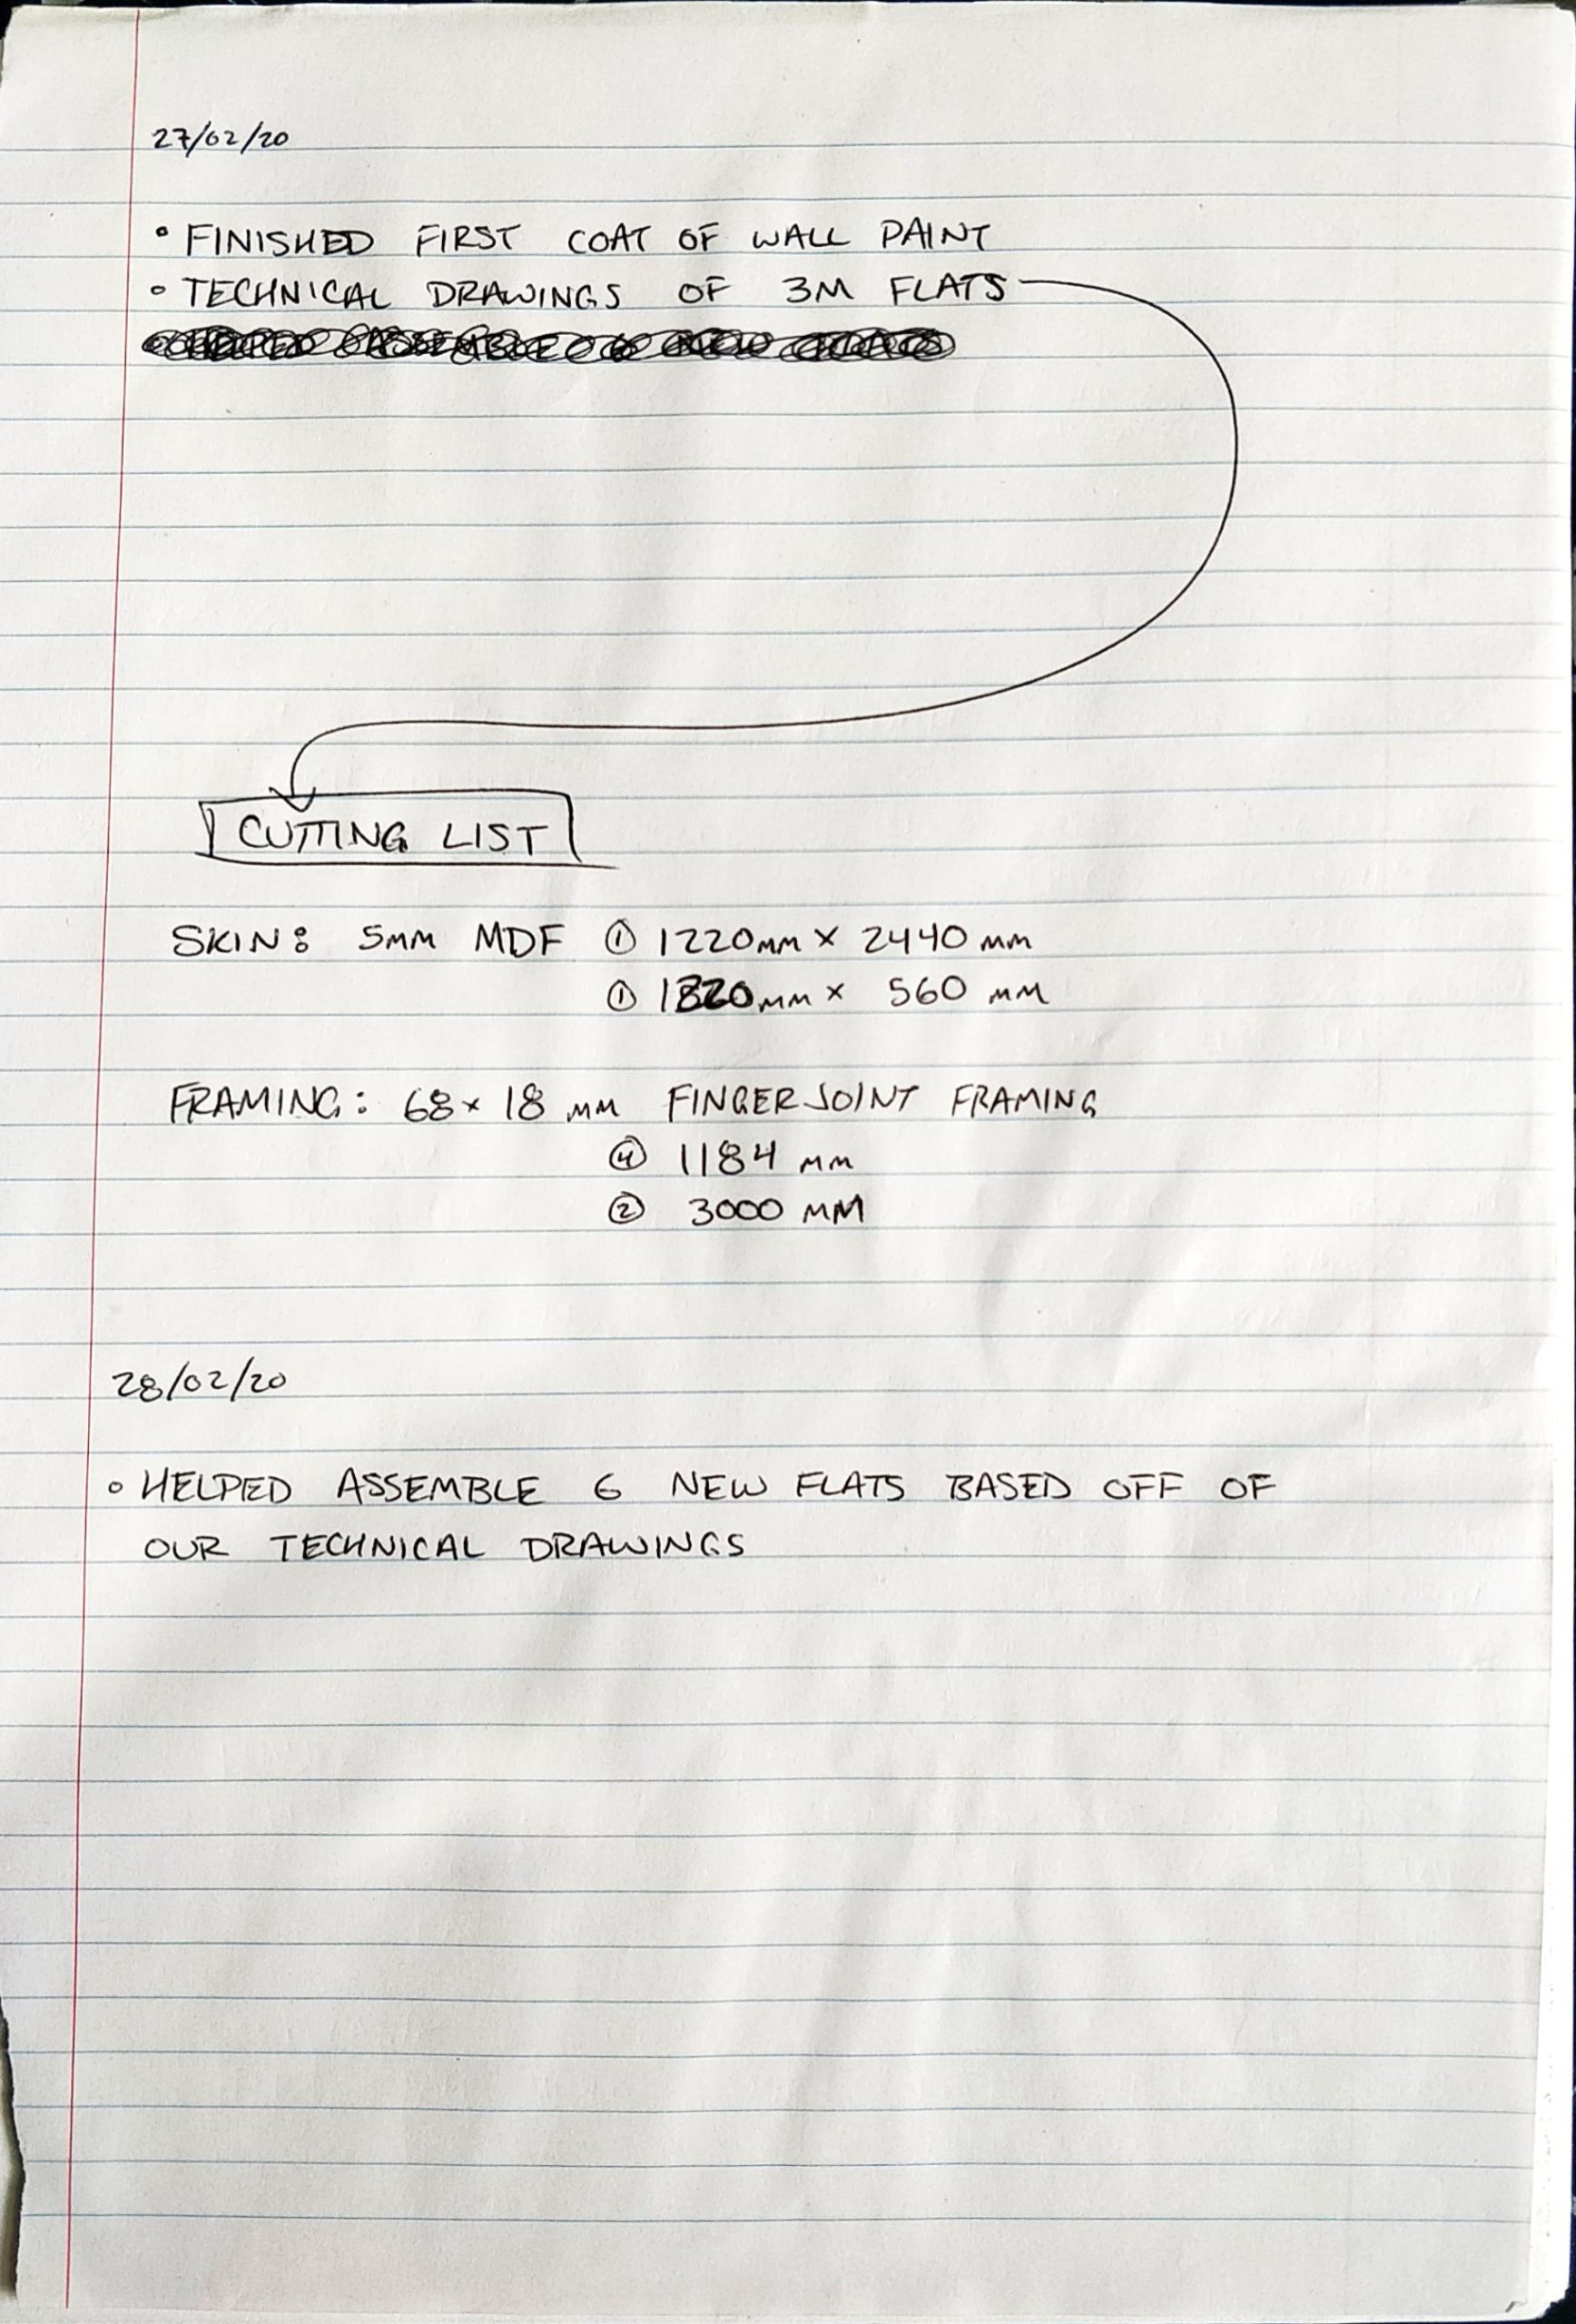 27/02/20
• FINISHED FIRST COAT OF WALL PAINT
• TECHNICAL DRAWINGS OF 3M FLATS
CUTTING LIST
SKIN: 5MM MDF ① 1220MM × 2440 MM
① 1220MM × 560 MM
FRAMING: 68 × 18 MM FINGERJOINT FRAMING
④ 1184 MM
② 3000 MM
28/02/20
• HELPED ASSEMBLE 6 NEW FLATS BASED OFF OF
OUR TECHNICAL DRAWINGS